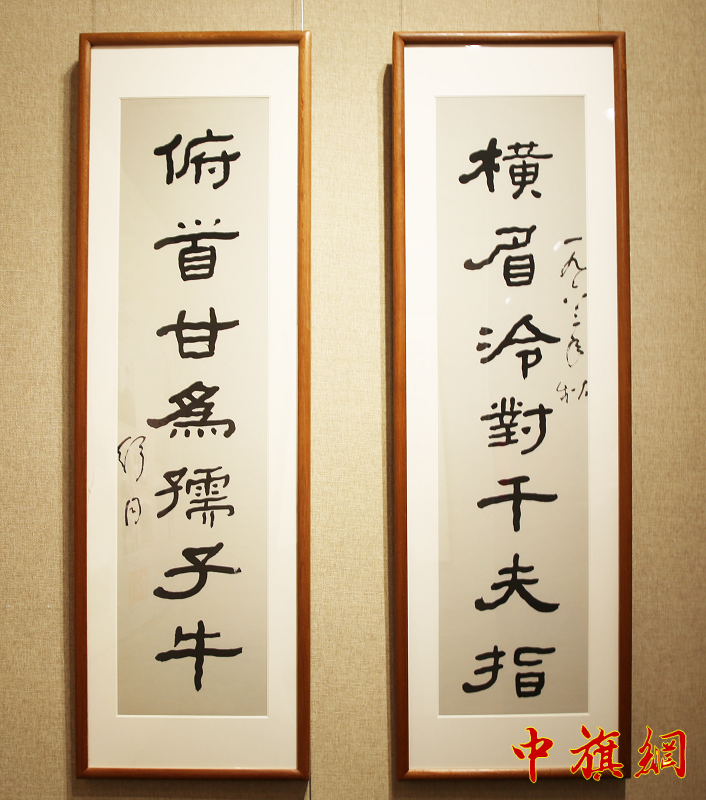 橫眉冷對千夫指
一九八三年秋
俯首甘為孺子牛
舒同
中旗網